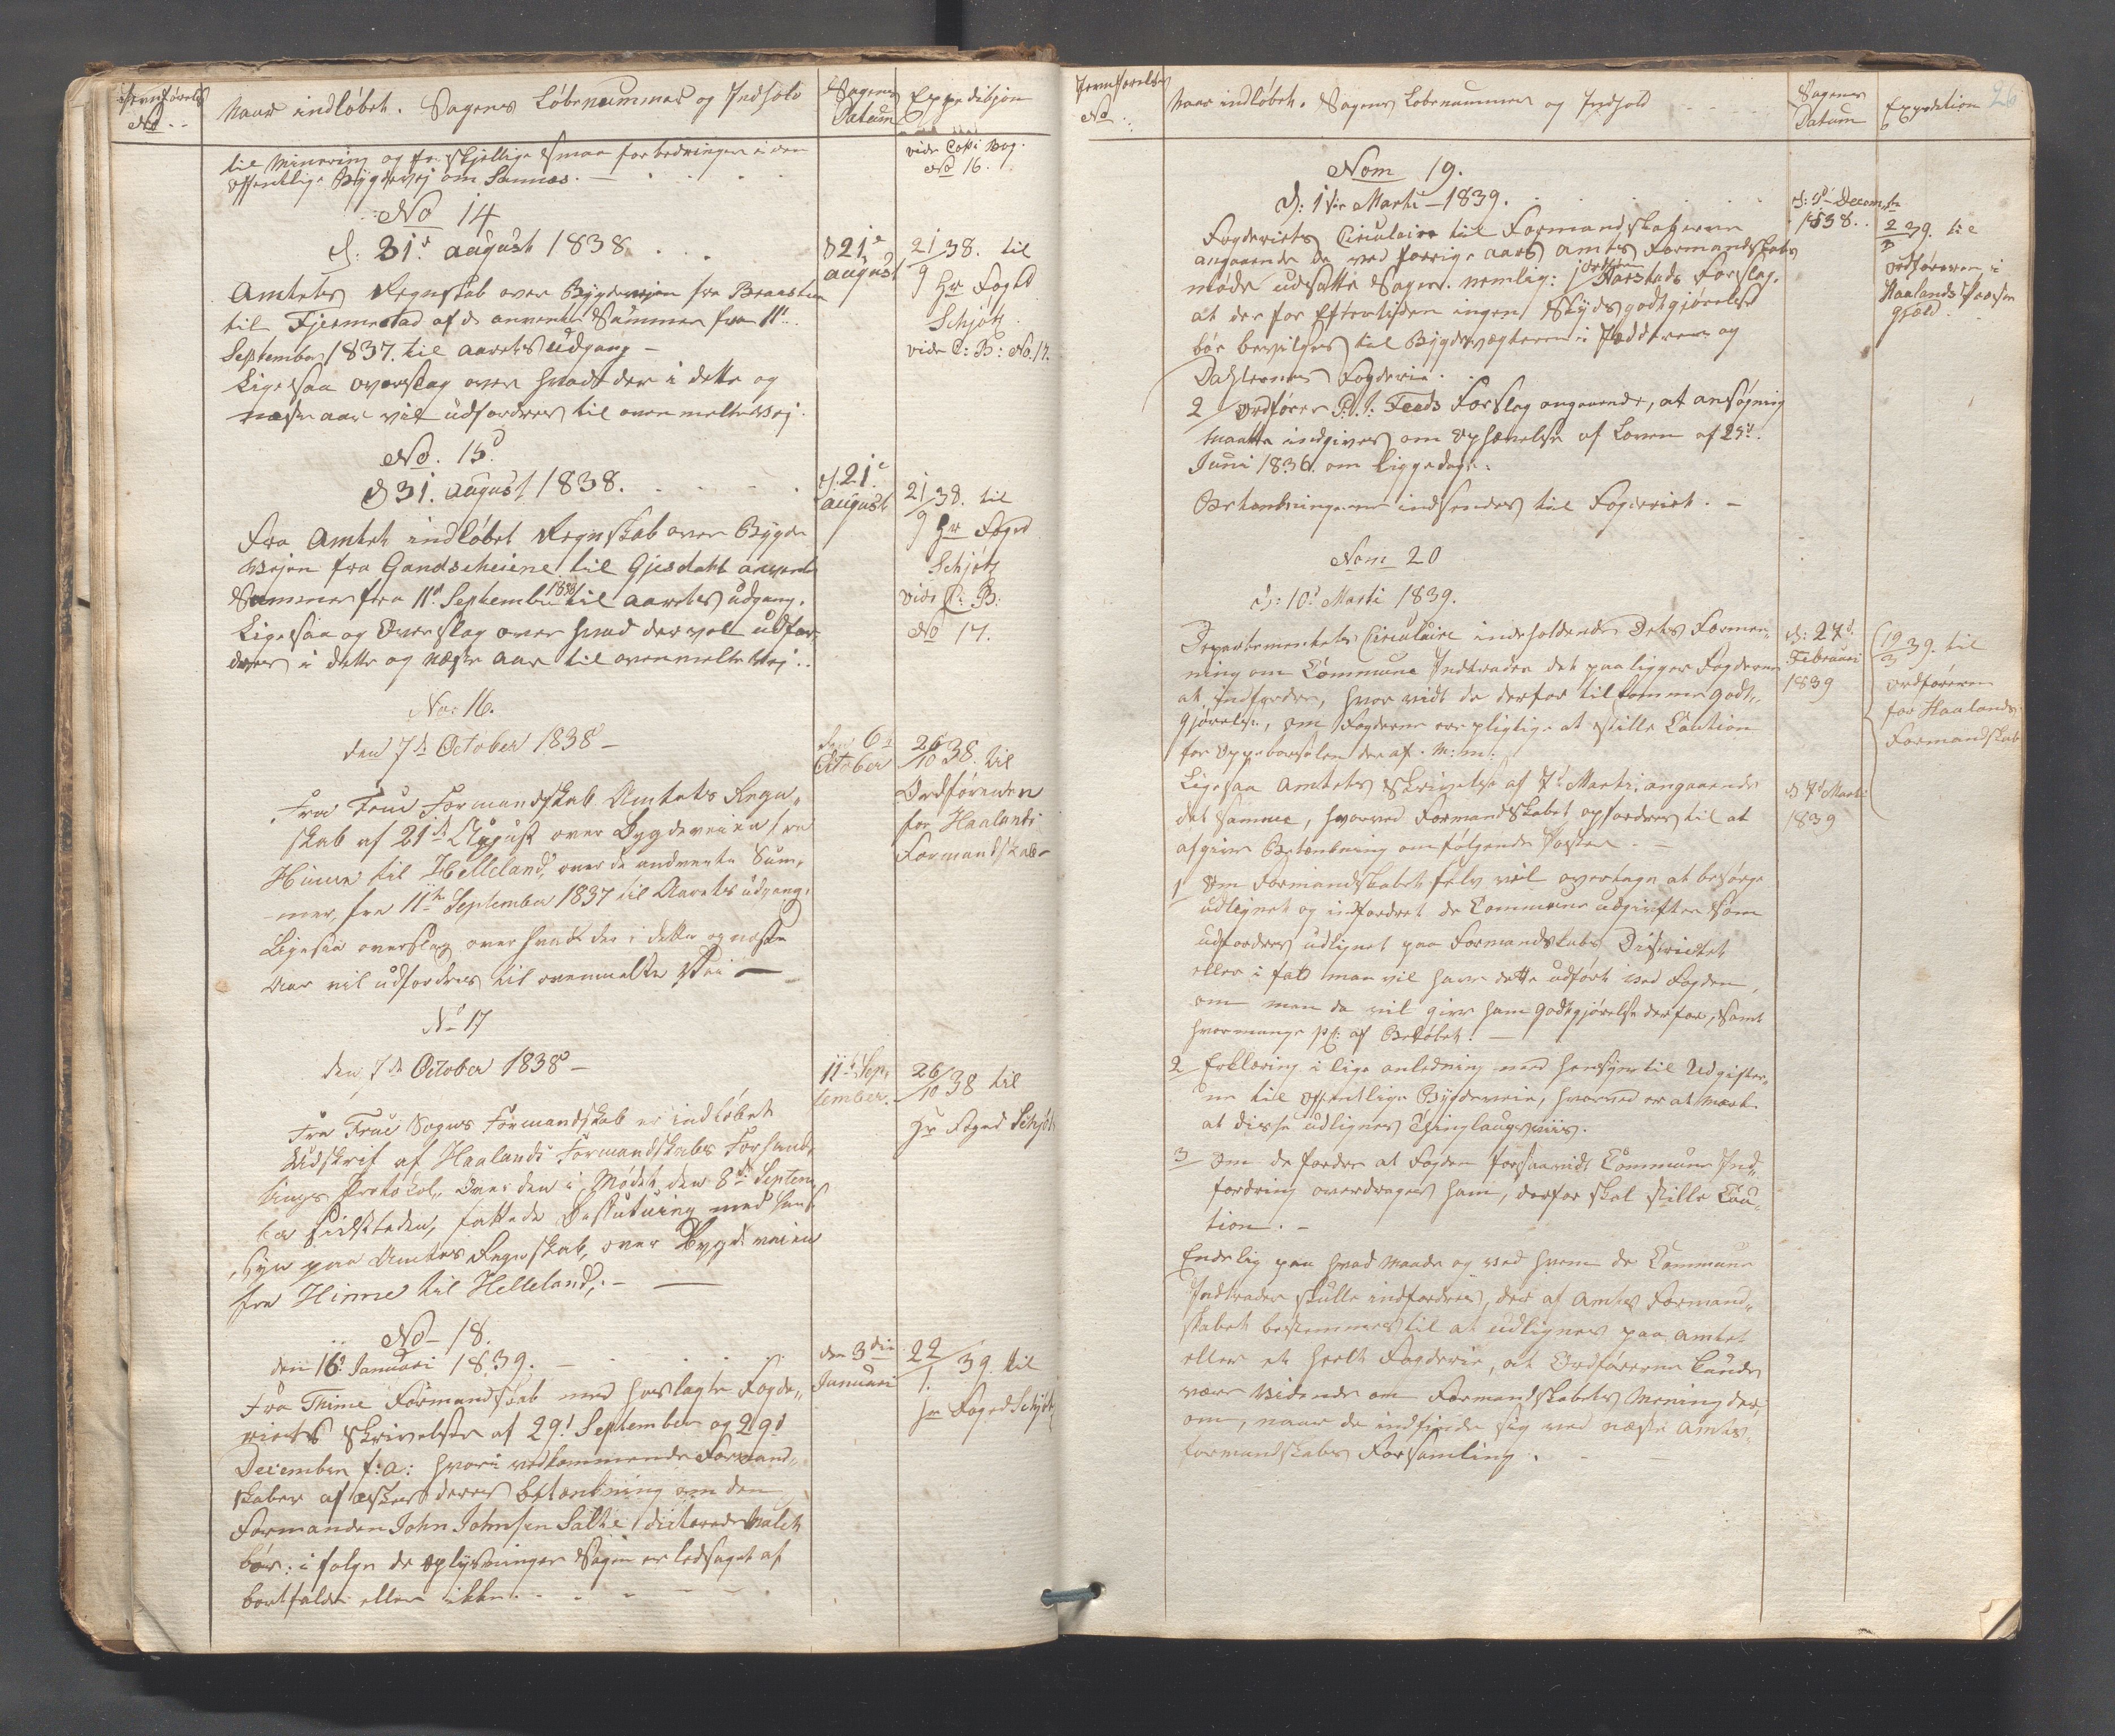 Jevnførelses
No
Naar indløbet. Sagens Løbenummer og Indhold
Sagens
Datum
Expedition
til Minering og forskjellige smaa forbedringer i den
offentlige Bygdevej om Sannes.
vide Copi Bog.
No 16.
No 14
d. 31te august 1838
Amtets Regnskab over Bygdevejen fra Braastein
til Fjermestad af de anvendte Summer fra 11te
September 1837 til aarets udgang
Ligesaa overslag over hvad der i dette og
næste aar vil udfordres til ovenmeldte Vej.
d 21de
august
21/9 38. til
Hr Foged
Schjøtz
vide C: B: No. 17.
No. 15
d 31. august 1838.
Fra Amtet indløbet Regnskab over Bygde
Vejen fra Gandscheiene til Gjesdahl anvendte
Summer fra 11te September 1837 til aarets udgang.
Ligesaa og Overslag over hvad der vil udfor-
dres i dette og næste aar til ovenmeldte Vej.
d. 21de
august
21/9 38. til
Hr Foged
Schjøtz
vide C: B:
No 17.
No. 16.
den 7de October 1838
Fra Frue Formandskab Amtets Regn-
skab af 21de August over Bygdeveien fra
Hinne til Helleland, over de andvente Sum-
mer, fra 11te September 1837 til Aarets udgang.
Ligesaa overslag over hvad der i dette og næste
Aar vil udfordres til ovenmeldte Vei
den 6te
October
26/10 38. til
Ordføreren
for Haalands
Formandskab
No 17
den 7de October 1838
Fra Frue Sogns Formandskab er indløbet
Udskrift af Haalands Formandskabs Forhand-
lings Protokol, over den i Mødet den 8de Septem-
ber sidstleden, fattede Beslutning med Hen-
syn paa Amtets Regnskab, over Bygdeveien
fra Hinne til Helleland.
11te Sep-
tember.
26/10 38 til
Hr Foged Schjøtz
No 18.
den 16de Januari 1839.
Fra Thime Formandskab med hoslagte Fogde-
riets Skrivelser af 29de September og 29de
December f: a: hvori vedkommende Formand-
skaber af æskes deres betænkning om den
Formanden John Johnsen Salte dicterede Mulct
bør: i følge de oplysninger Sagen er ledsaget af
bortfalde eller ikke.
den 3die
Januari
22/1 39. til
Hr Foged Schjøtz
Jevnførelses
No
Naar indløbet. Sagens Løbenummer og Indhold
Sagens
Datum
Expedition
26
Nom 19.
d: 1ste Marti 1839.
Fogderiets Circulaire til Formandskaberne
angaaende de ved forrige aars amts Formandskabs
møde udsatte Sager. nemlig: 1 Ordfører Harestads Forslag.
at der for Eftertiden ingen Skydsgodtgjørelse
bør bevilges til Bygdevægterne i Jædderen og
Dahlernes Fogderie.
2 Ordfører P. I: Feeds Forslag angaaende, at ansøgning
maatte indgives om Ophævelse af Loven af 25de
Juni 1836. om liggedage.
Betænkningerne indsendes til Fogderiet.
Decembr
1838.
2/3 39. til
Ordføreren i
Haalands Præste
gjeld.
Nom 20
d: 10de Marti 1839.
Departementets Circulaire indeholdende Dets Formee-
ning om Commune Indtrader det paa ligger Fogderne
at indfordre, hvor vidt de derfor tilkomme godt-
gjørelse, om Fogderne ere pligtige at stille Caution
for Oppebørselen deraf. m: m:
Ligesaa Amtets Skrivelse af 7de Marti: angaaende
det samme, hvorved Formandskabet opfordres til at
afgive Betænkning om følgende Poster.
1 Om Formandskabet selv vil overtage at besørge
udlignet og indfordret de Commune udgivter som
udfordres udlignet paa Formandskabs Districtet
eller i fald man vil have dette udført ved Fogden,
om man da vil give ham godtgjørelse derfor, samt
hvormange pCt: af Beløbet.
2 Erklæring i lige anledning med hensyn til Udgifter-
ne til offentlige Bygdeveie, hvorved er at mærke
at disse udlignes Thinglaugsviis.
3 Om de fordre at Fogden forsaavidt Commune Ind-
fordring overdrages ham, derfor skal stille Cau-
tion.
Endelig paa hvad maade og ved hvem de Commune
Indtrader skulle indfordres, der af Amts Formand-
skabet bestemmes til at udlignes paa Amtet
eller et heelt Fogderie, at Ordførerne kunde
være vidende om Formandskabets Mening der-
om, naar de indfinde sig ved næste Amts-
formandskabs Forsamling.
d: 27de
Februari
1839
d 7de Marti
1839
19/3 39. til
ordføreren
for Haalands
Formandskab